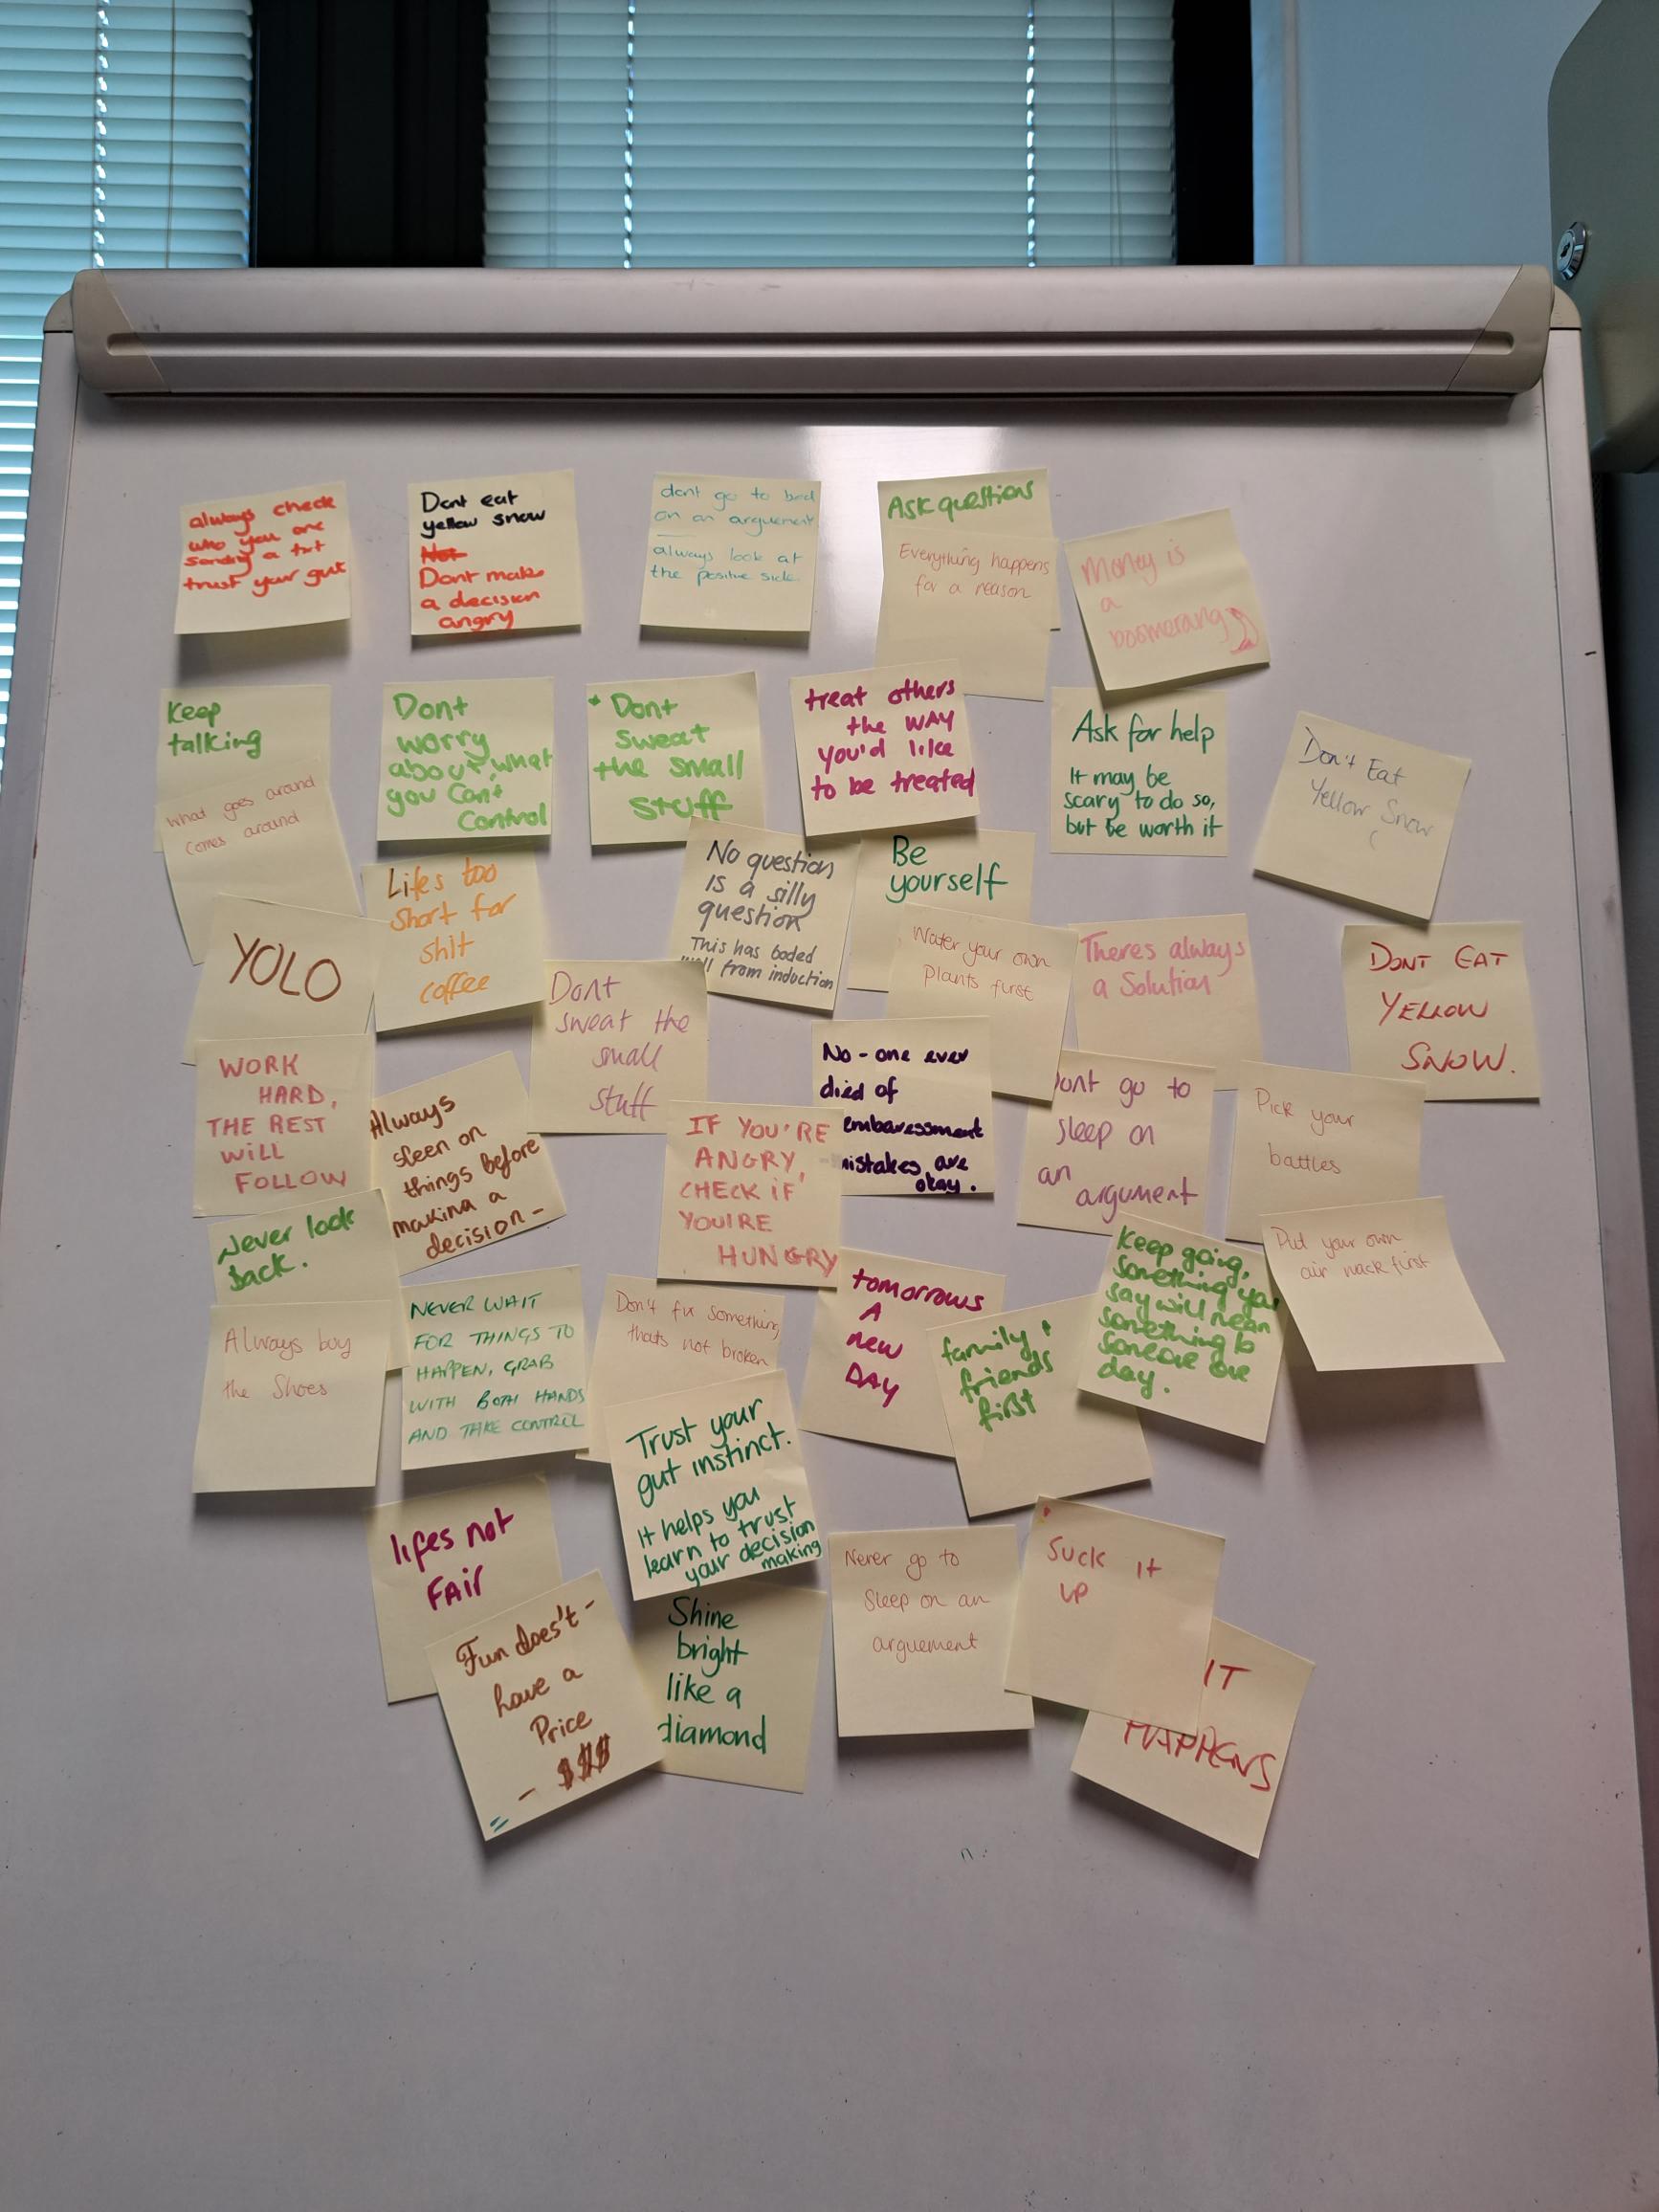 always check
who you are
sending a txt
trust your gut
Dont eat
yellow snow
Not
Dont make
a decision
angry
dont go to bed
on an arguement
always look at
the positive side
Ask questions
Everything happens
for a reason
Money is
a
boomerang
Keep
talking
What goes around
comes around
Dont
worry
about what
you cant
Control
Dont
sweat
the small
stuff
treat others
the WAY
you'd like
to be treated
Ask for help
It may be
scary to do so,
but be worth it
Don't Eat
Yellow Snow
Lifes too
short for
shit
coffee
No question
is a silly
question
This has boded
well from induction
Be
yourself
Water your own
plants first
Theres always
a Solution
DONT EAT
YELLOW
SNOW.
YOLO
Dont
sweat the
small
stuff
WORK
HARD,
THE REST
WILL
FOLLOW
Always
sleen on
things before
making a
decision -
No-one ever
died of
embaressment
mistakes are
okay.
IF YOU'RE
ANGRY,
CHECK IF
YOU'RE
HUNGRY
ont go to
sleep on
an
argument
Pick your
battles
Never look
back.
Put your own
air mask first
Keep going,
something you
say will mean
something to
someone one
day.
Always buy
the Shoes
NEVER WAIT
FOR THINGS TO
HAPPEN, GRAB
WITH BOTH HANDS
AND TAKE CONTROL
Don't fix something
thats not broken
tomorrows
A
new
DAY
family +
friends
first
Trust your
gut instinct.
It helps you
learn to trust
your decision
making
lifes not
FAIr
Never go to
Sleep on an
arguement
Suck it
up
IT
HAPPENS
Fun does't -
have a
Price
- $$$
Shine
bright
like a
diamond